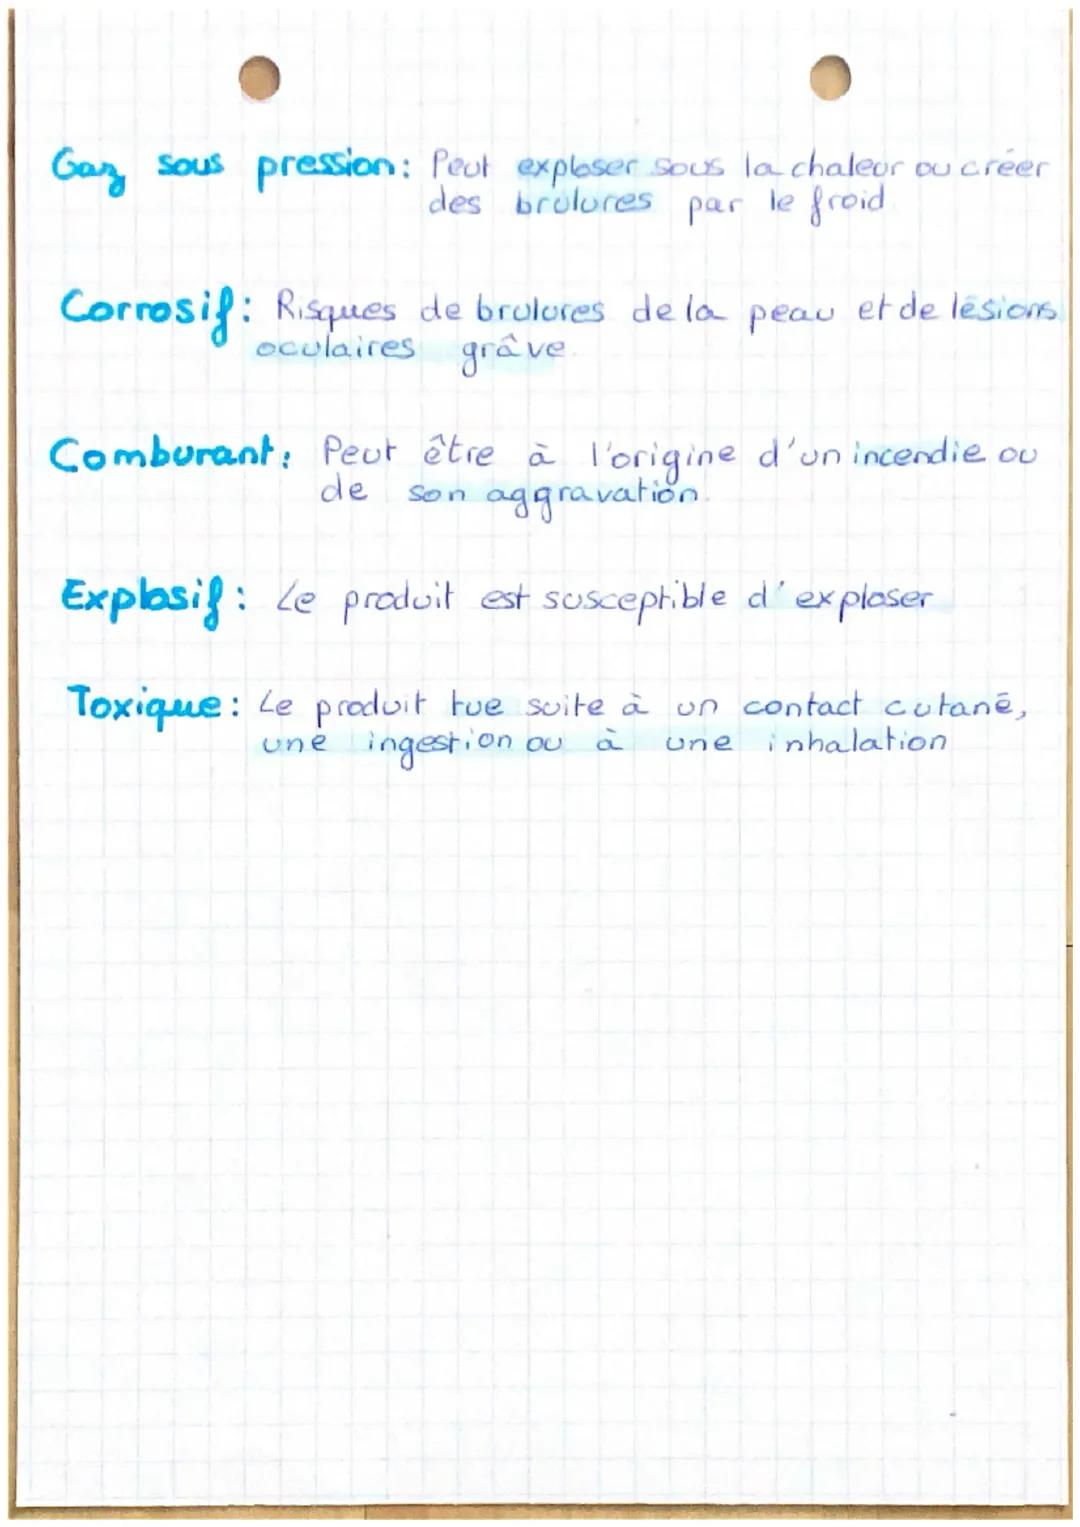 Gaz sous pression: Peut exploser sous la chaleur ou créer
des brulures par le froid.
Corrosif: Risques de brulures de la peau et de lésions
oculaires grâve.
Comburant: Peut être à l'origine d'un incendie ou
de son aggravation.
Explosif: Le produit est susceptible d'exploser
Toxique: Le produit tue suite à un contact cutané,
une ingestion ou à une inhalation